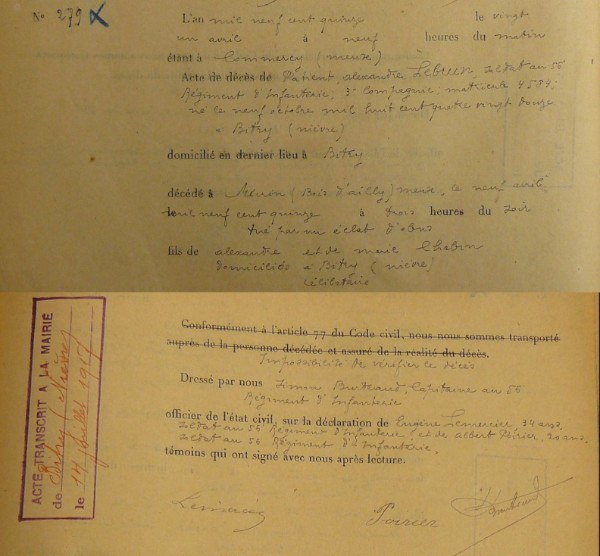 N° 279 X
L'an mil neuf cent quinze le vingt
un avril à neuf heures du matin
étant à Commercy (meuse)
Acte de décès de Patient, alexandre Lebrun, soldat au 56
Régiment d'Infanterie; 3e Compagnie; matricule 4584;
né le neuf octobre mil huit cent quatre vingt douze
à Bitry (nièvre)
domicilié en dernier lieu à Bitry
décédé à (Bois d'ailly) meuse, le neuf avril
mil neuf cent quinze à trois heures du soir
tué par un éclat d'obus
fils de alexandre et de marie Chabin
domiciliés à Bitry (nièvre)
célibataire
Conformément à l'article 77 du Code civil, nous nous sommes transporté
auprès de la personne décédée et assuré de la réalité du décès.
Impossibilité de vérifier le décès
Dressé par nous Simon Capitaine au 56
Régiment d'Infanterie
officier de l'état civil, sur la déclaration de Eugène Lemercier 34 ans,
soldat au 56 Régiment d'Infanterie, et de albert Poirier, 20 ans,
soldat au 56 Régiment d'Infanterie,
témoins qui ont signé avec nous après lecture.
Lemercier Poirier
ACTE TRANSCRIT A LA MAIRIE
de Bitry (Nièvre)
le 14 juillet 1915